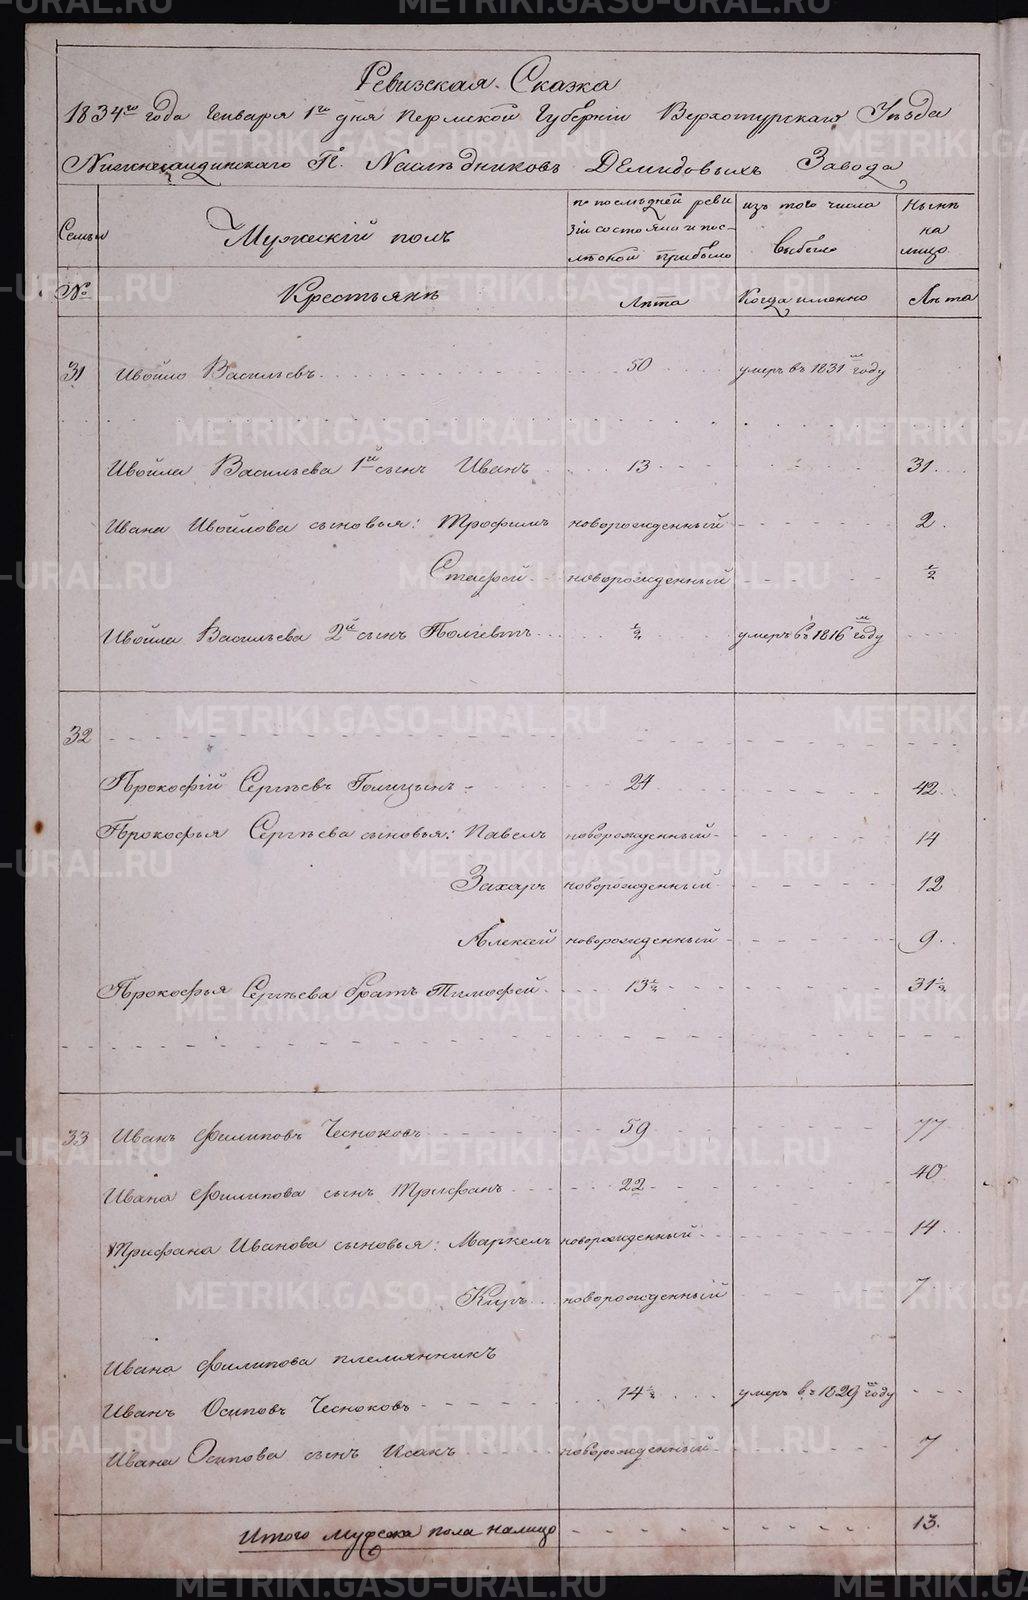 Ревизская Сказка
1834го года Генваря 1го дня Пермской Губернiи Верхотурскаго Уѣзда
П. Наслѣдниковъ Демидовыхъ Завода
Семьи
Мужескiй полъ
по послѣдней реви
зiи состояло и пос-
лѣ оной прибыло
изъ того числа
выбыло
Нынѣ
на
лицо
№
Крестьянѣ
Лѣта
Когда именно
Лѣта
31 Ивойло Васильевъ 50 умеръ въ 1831 году
Ивойла Васильева 1й сынъ Иванъ 13 31
Ивана Ивойлова сыновья: Трофимъ новорожденный 2
новорожденный ½
Ивойла Васильева 2й сынъ ½ умеръ въ 1816м году
32
Прокофiй Сергѣевъ Голицынъ 24 42
Прокофья Сергѣева сыновья: Павелъ новорожденный 14
Захаръ новорожденный 12
Алексѣй новорожденный 9
Прокофья Сергѣева братъ Тимофей 13½ 31½
33 Иванъ Филиповъ Чесноковъ 59 77
Ивана Филипова сынъ Трифанъ 22 40
Трифана Иванова сыновья: Маркелъ новорожденный 14
Киръ новорожденный 7
Ивана Филипова племянникъ
Иванъ Осиповъ Чесноковъ 14½ умеръ въ 1829 году
Ивана Осипова сынъ Исакъ новорожденный 7
Итого мужеска пола налицо 13.
METRIKI.GASO-URAL.RU